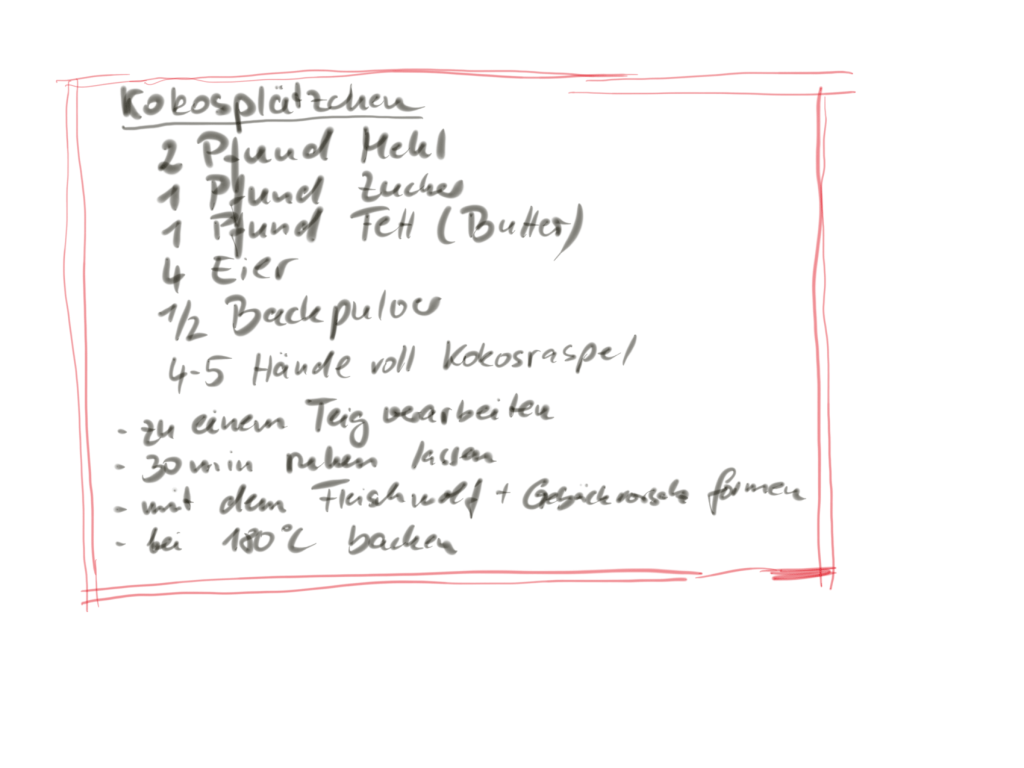 Kokosplätzchen
2 Pfund Mehl
1 Pfund Zucker
1 Pfund Fett (Butter)
4 Eier
1/2 Backpulver
4-5 Hände voll Kokosraspel
- zu einem Teig verarbeiten
- 30 min ruhen lassen
- mit dem Fleischwolf + Gebäckvorsatz formen
- bei 180°C backen